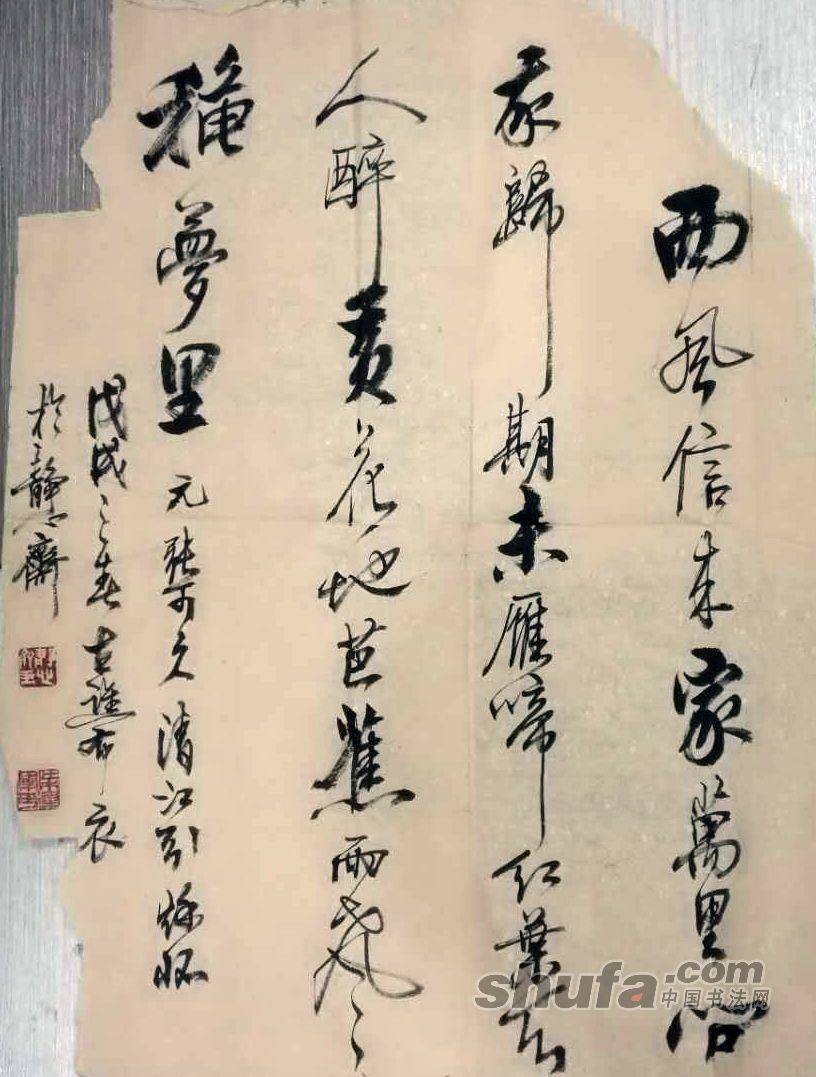 西風信来家萬里问
我歸期未雁啼红葉天
人醉黄花地芭蕉雨聲
穐夢里 元張可久清江引秋怀
戊戌之春古譙布衣
於静心齋
shufa.com
中国书法网